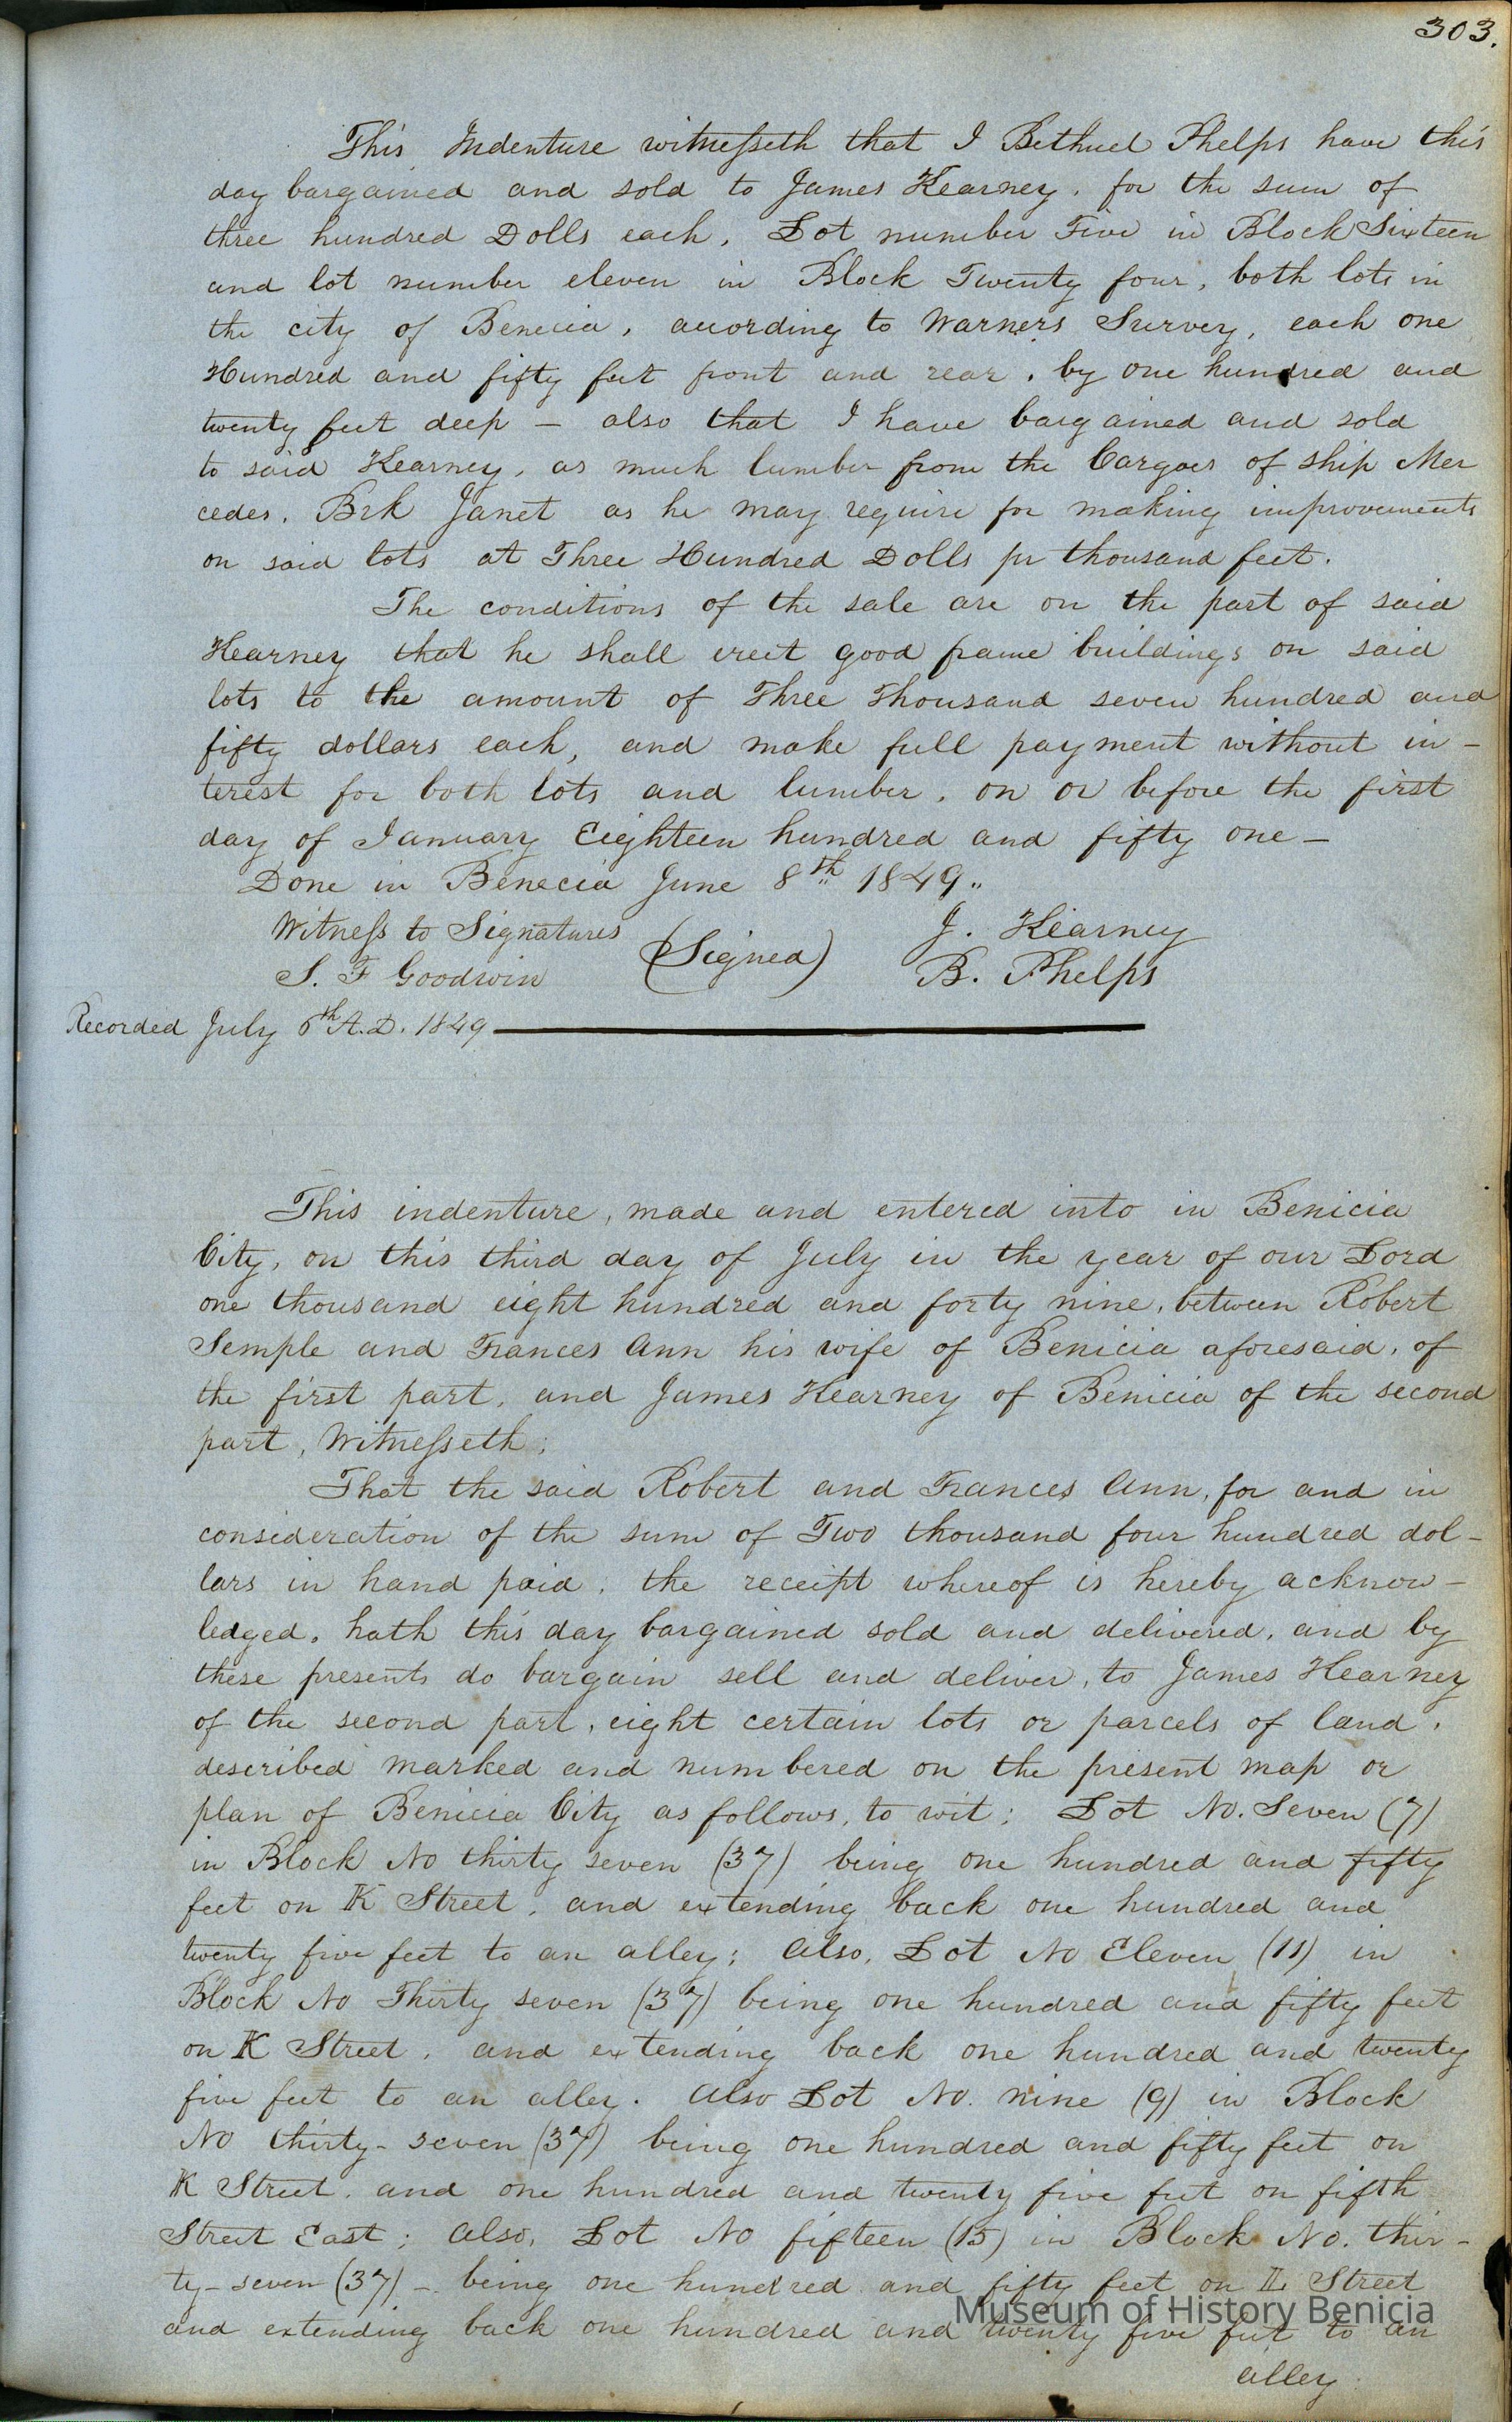 303.
This Indenture witnesseth that I Bethuel Phelps have this
day bargained and sold to James Kearney, for the sum of
three hundred Dolls each, Lot number Five in Block Sixteen
and lot number eleven in Block Twenty four, both lots in
the city of Benecia, according to Warners Survey, each one
Hundred and fifty feet front and rear, by one hundred and
twenty feet deep – also that I have bargained and sold
to said Kearney, as much lumber from the Cargoes of ship Mer
cedes, Brk Janet as he may require for making improvements
on said lots at Three Hundred Dolls pr thousand feet.
The conditions of the sale are on the part of said
Kearney that he shall erect good frame buildings on said
lots to the amount of Three Thousand seven hundred and
fifty dollars each, and make full payment without in-
terest for both lots and lumber, on or before the first
day of January Eighteen hundred and fifty one –
Done in Benecia June 8th 1849.
Witness to Signatures (Signed) J. Kearney
S. F Goodwin B. Phelps
Recorded July 6th A.D. 1849
This indenture, made and entered into in Benicia
City, on this third day of July in the year of our Lord
one thousand eight hundred and forty nine, between Robert
Semple and Frances Ann his wife of Benicia aforesaid, of
the first part, and James Kearney of Benicia of the second
part, Witnesseth;
That the said Robert and Frances Ann, for and in
consideration of the sum of Two thousand four hundred dol-
lars in hand paid, the receipt whereof is hereby acknow-
ledged, hath this day bargained sold and delivered, and by
these presents do bargain sell and deliver, to James Kearney
of the second part, eight certain lots or parcels of land,
described marked and numbered on the present map or
plan of Benicia City as follows, to wit; Lot No. Seven (7)
in Block No thirty seven (37) being one hundred and fifty
feet on K Street, and extending back one hundred and
twenty five feet to an alley; Also, Lot No Eleven (11) in
Block No Thirty seven (37) being one hundred and fifty feet
on K Street, and extending back one hundred and twenty
five feet to an alley. Also Lot No. nine (9) in Block
No thirty-seven (37) being one hundred and fifty feet on
K Street, and one hundred and twenty five feet on fifth
Street East; Also, Lot No fifteen (15) in Block No. thir-
ty-seven (37) – being one hundred and fifty feet on L Street
and extending back one hundred and twenty five feet to an
alley
Museum of History Benicia